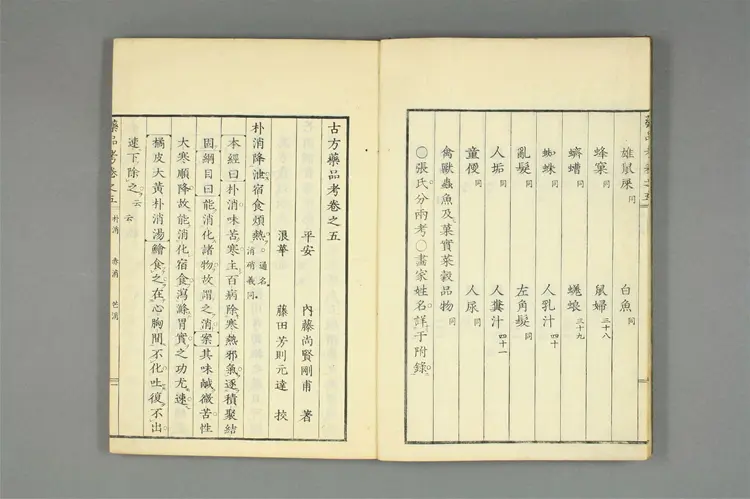 雄鼠屎同 白魚同
蜂窠同 鼠婦三十八
蠐螬同 蜣蜋三十九
蜘蛛同 人乳汁四十
亂髮同 左角髮同
人垢同 人糞汁四十一
童便同 人尿同
禽獸蟲魚及菓實菜穀品物
○張氏分兩考○畫家姓名詳于附錄
藥品考卷之五
古方藥品考卷之五
平安 內藤尚賢剛甫 著
浪華 藤田芳則元達 挍
朴消降泄宿食煩熱○通名消硝義同
本經曰朴消味苦寒主百病除寒熱邪氣逐積聚結
固綱目曰能消化諸物故謂之消案其味鹹微苦性
大寒順降故能消化宿食瀉滌胃實之功尤速
橘皮大黃朴消湯鱠食之在心胸間不化吐復不出
速下除之云云
藥品考卷之五 朴消 赤消 芒消 一